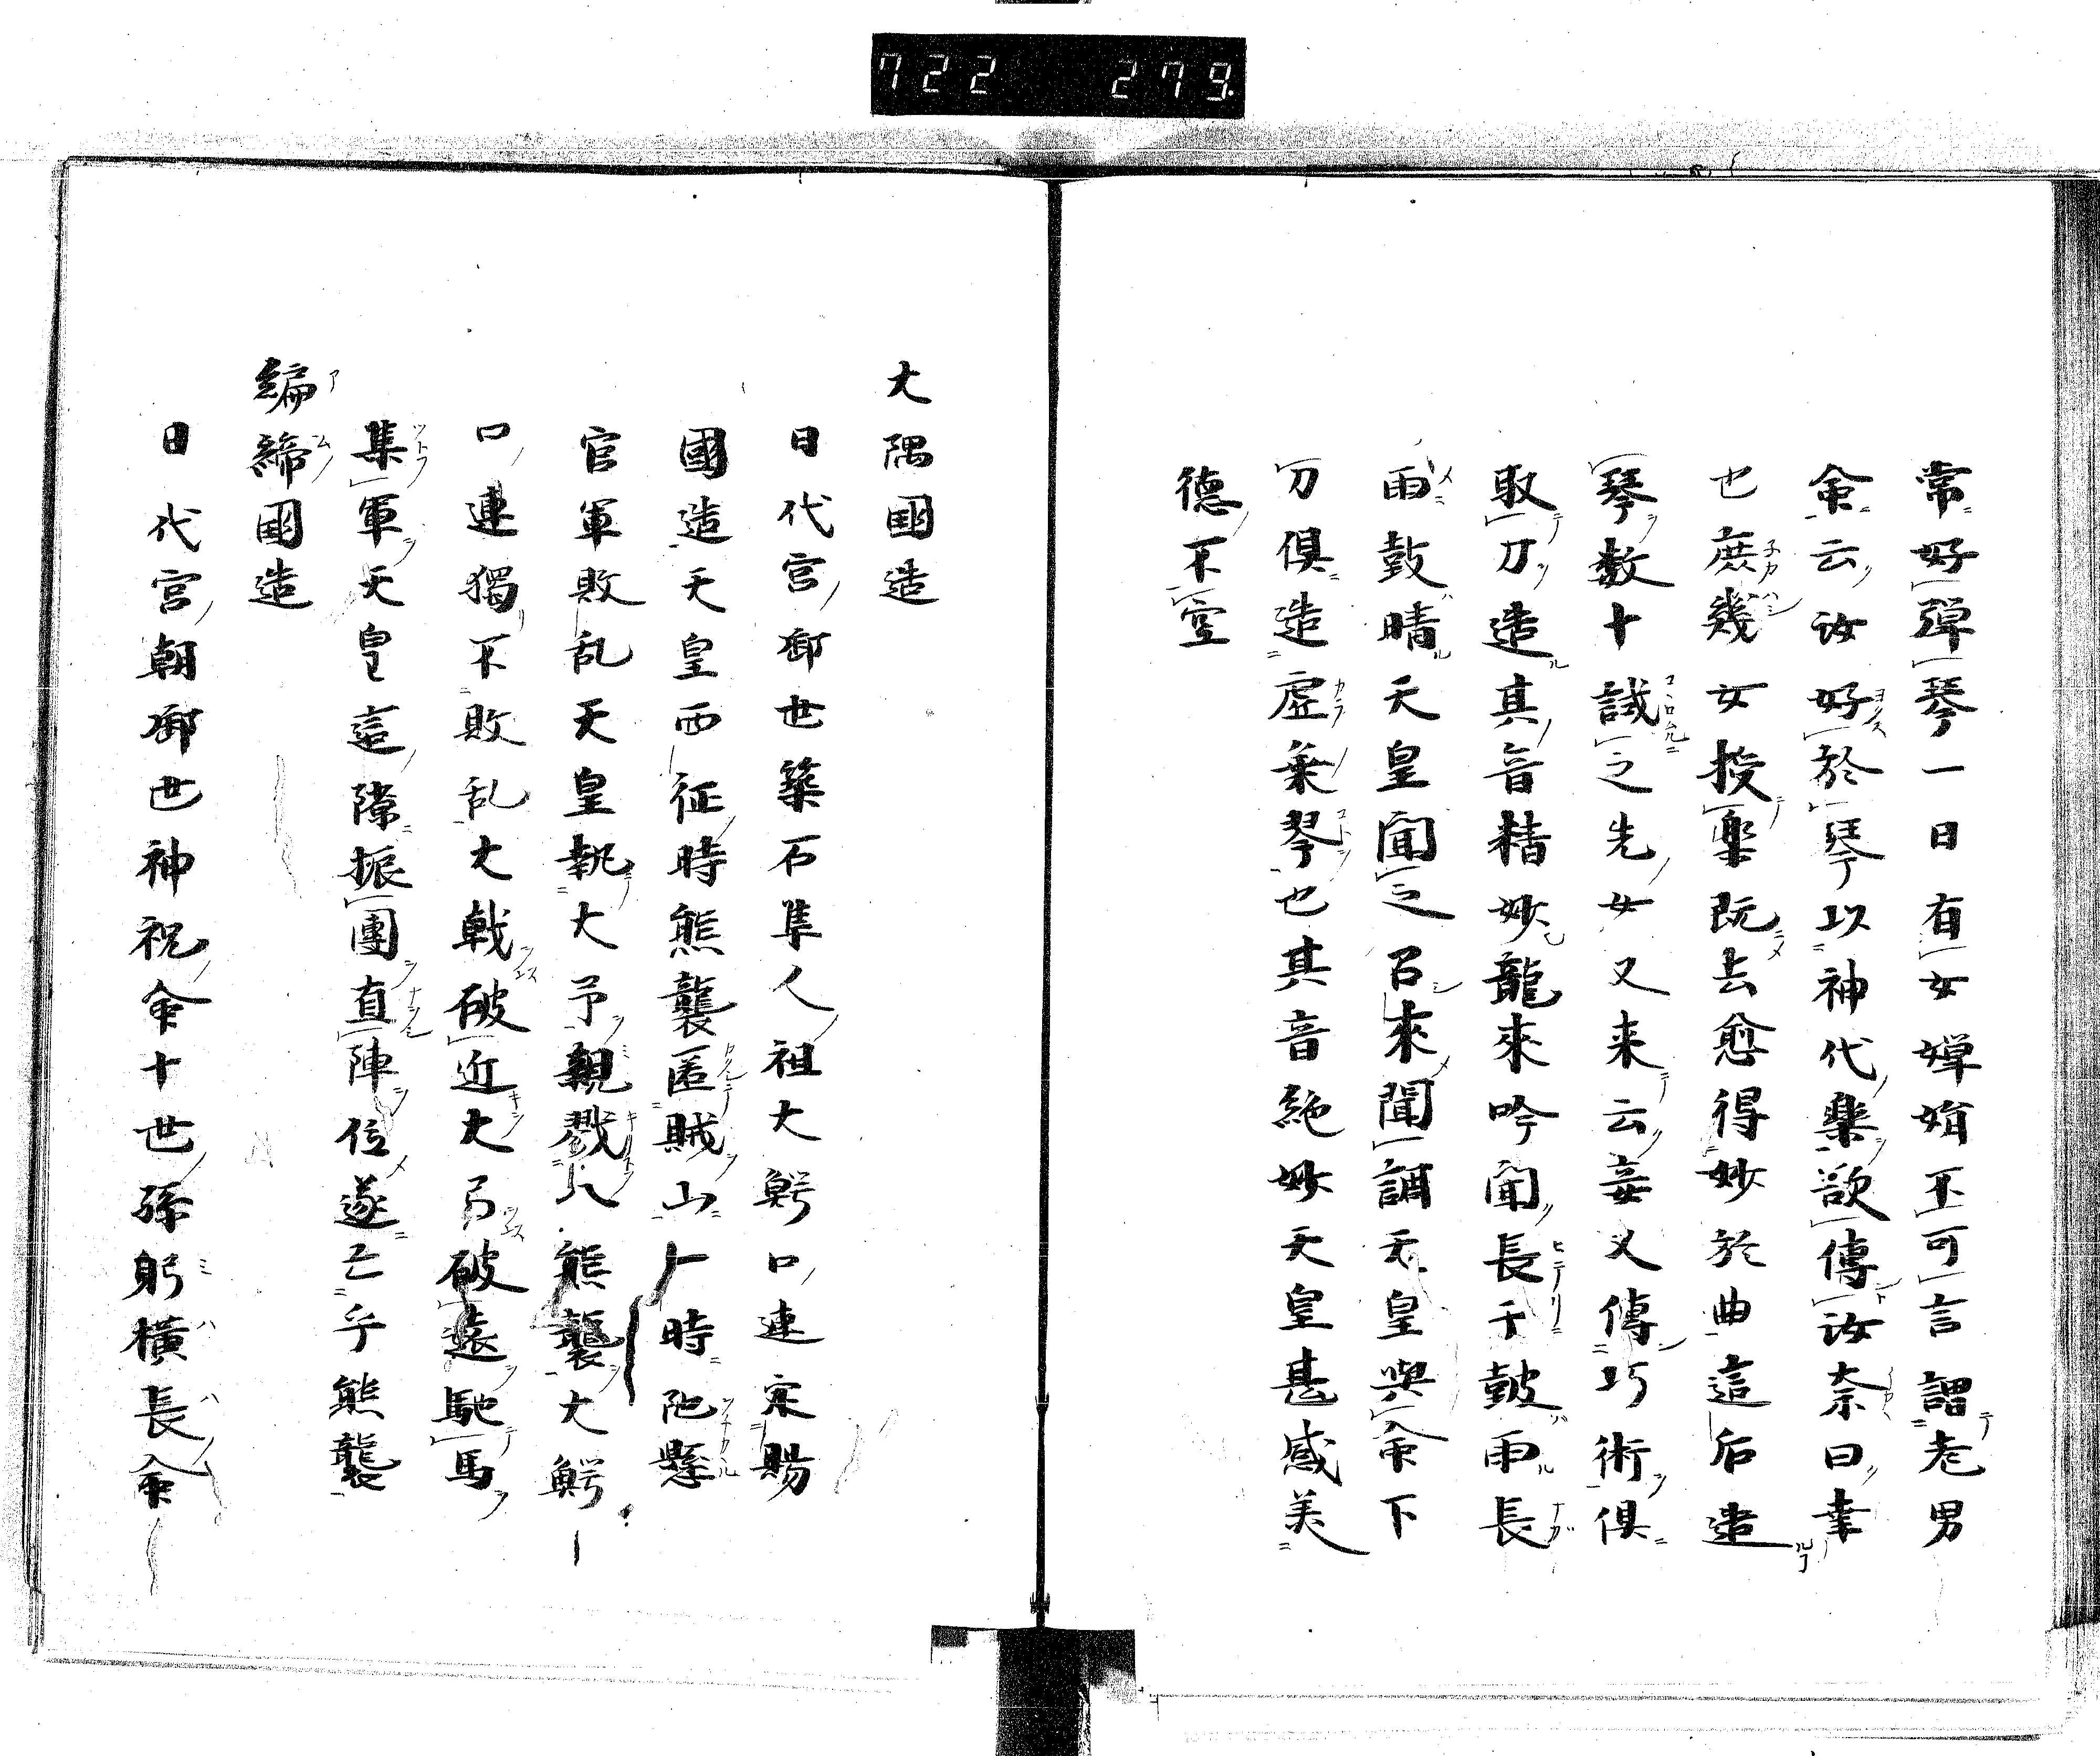 722 279
常好彈琴一日有女嬋娟不可言謂老男
命云汝好於琴以神代樂欲傳汝奈曰幸
也庶幾女授樂既去愈得妙於曲這后造
琴數十試之先女又来云妾又傳巧術俱
取刀造其音精妙龍來吟聞長于鼓雨長
雨鼓晴天皇聞之召來聞調天皇與命下
刀俱造虛乘琴也其音絶妙天皇甚感美
德不空
大隅國造
日代宮御世築石隼人祖大鰐口連宋賜
國造天皇西征時熊襲匿賊山上時阤懸
官軍敗乱天皇執大予親戮八熊襲大鰐
口連獨不敗乱大戟破近大弓破遠馳馬
集軍天皇這際振團直陣位遂亡乎熊襲
編締國造
日代宮朝御世神祝命十世孫躬橫長命